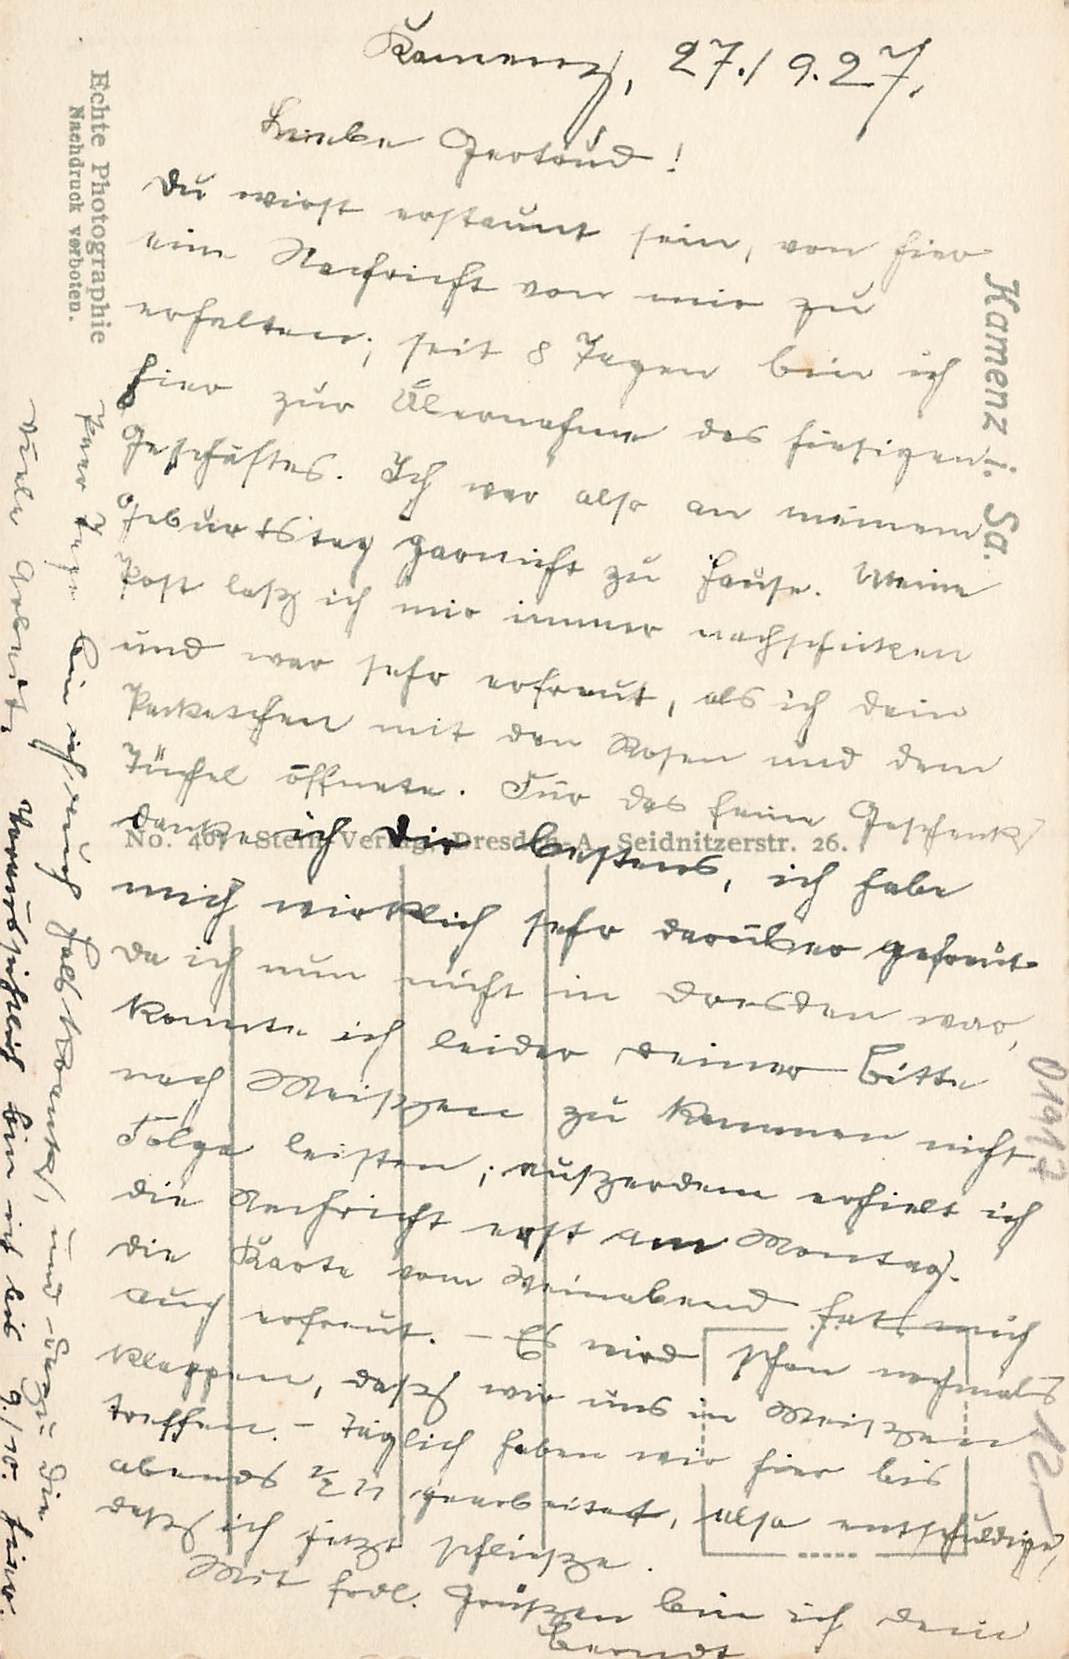 Kamenz, 27./9.27.
Liebe Gertrud!
Du wirst erstaunt sein, von hier
eine Nachricht von mir zu
erhalten; seit 8 Tagen bin ich
hier zur Übernahme des hiesigen
Geschäftes. Ich war also an meinem
Geburtstag garnicht zu Hause. Meine
Post laß ich mir immer nachschicken
und war sehr erfreut, als ich dein
Paketchen mit den Rosen und dem
öffnete. Für das feine Geschenk
danke ich dir bestens, ich habe
mich wirklich sehr darüber gefreut.
Da ich nun nicht in Dresden war,
konnte ich leider deiner Bitte
nach Meißen zu kommen nicht
Folge leisten; außerdem erhielt ich
die Nachricht erst am Montag.
Die Karte vom Weinabend hat mich
auch erfreut. – Es wird schon nochmals
klappen, daß wir uns in Meißen
treffen. – Täglich haben wir hier bis
abends gearbeitet, also entschuldige,
daß ich jetzt schließe.
Mit frdl. Grüßen bin ich dein
Berndt
Paar Tage bin ich auch halb krank, und dazu die
viele Arbeit. Voraussichtlich bin ich bis 9./10. hier.
Echte Photographie
Nachdruck verboten.
No. 407 Stein-Verlag, Dresden-A, Seidnitzerstr. 26.
Kamenz i. Sa.
01917
12.–